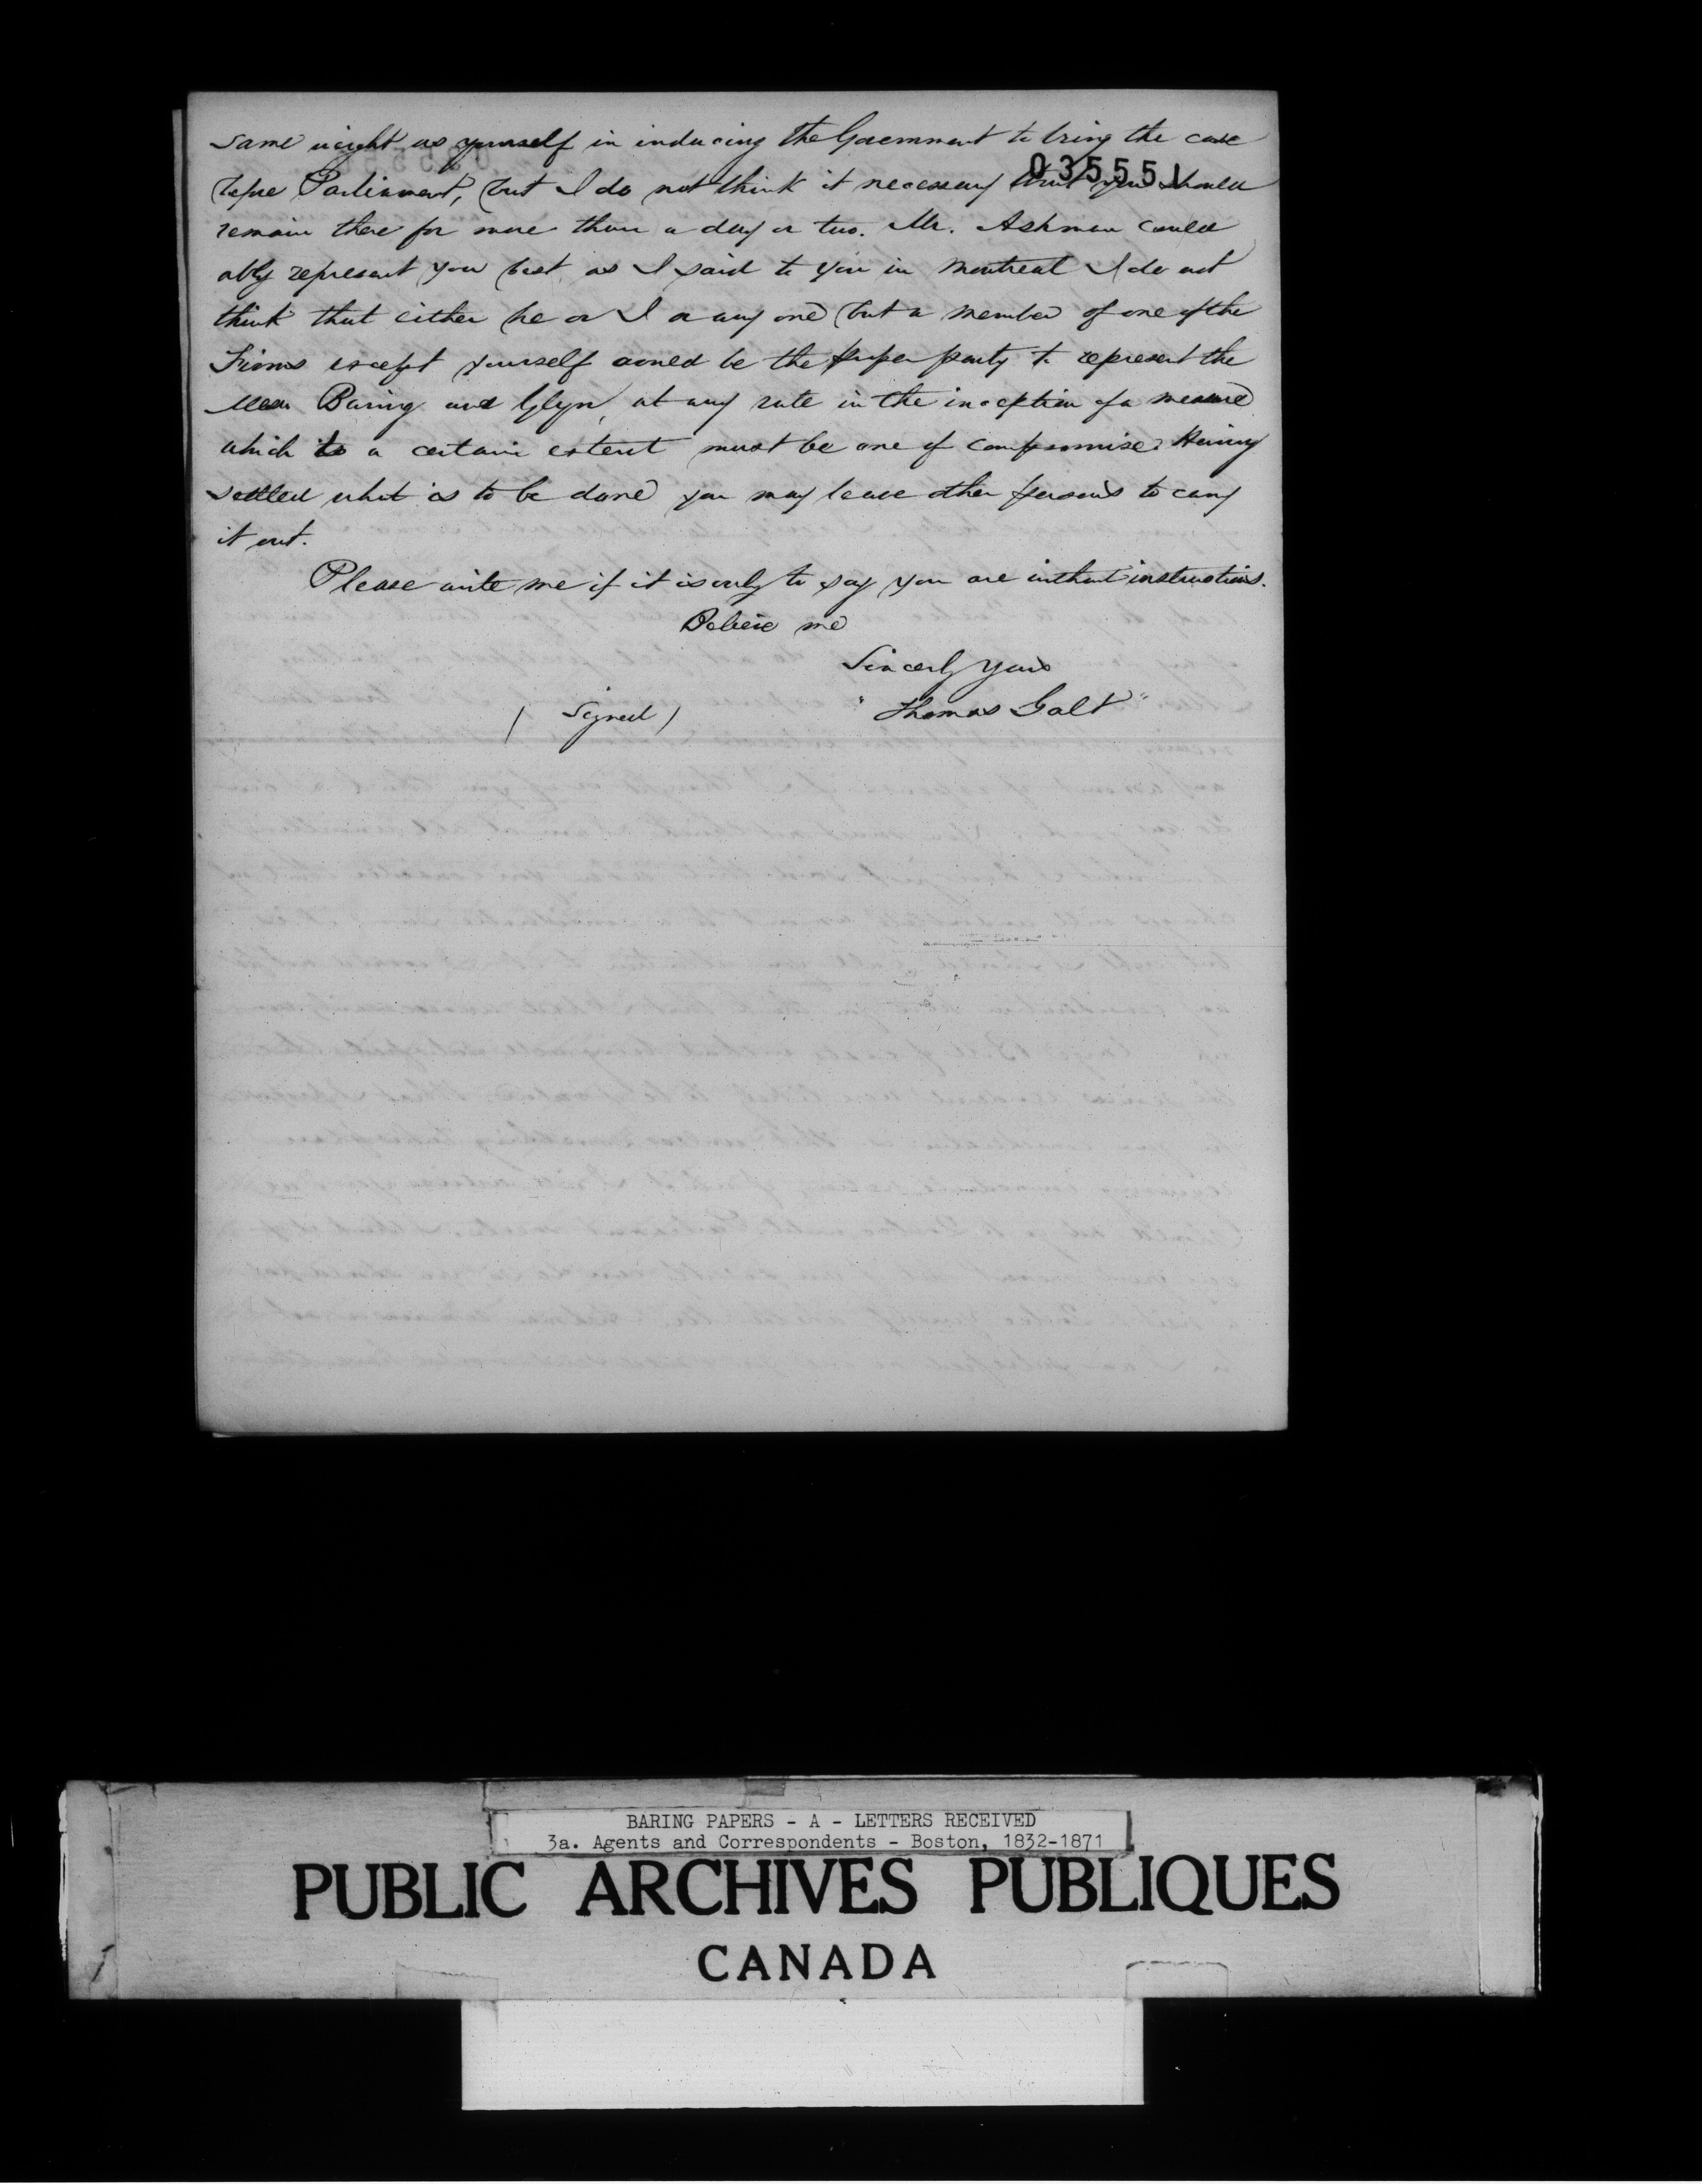 same weight as yourself in inducing the Government to bring the case
035551
before Parliament, but I do not think it necessary that you should
remain there for more than a day or two. Mr. Ashmun could
ably represent you but as I said to you in Montreal I do not
think that either he or I or any one but a member of one of the
Firms except yourself would be the proper party to represent the
Messrs Baring and Glyn, at any rate in the inception of a measure
which to a certain extent must be one of compromise. Having
settled what is to be done you may leave other persons to carry
it out.
Please write me if it is only to say you are without instructions.
Believe me
Sincerely yours
(Signed) "Thomas Galt"
BARING PAPERS - A - LETTERS RECEIVED
3a. Agents and Correspondents - Boston, 1832-1871
PUBLIC ARCHIVES PUBLIQUES
CANADA